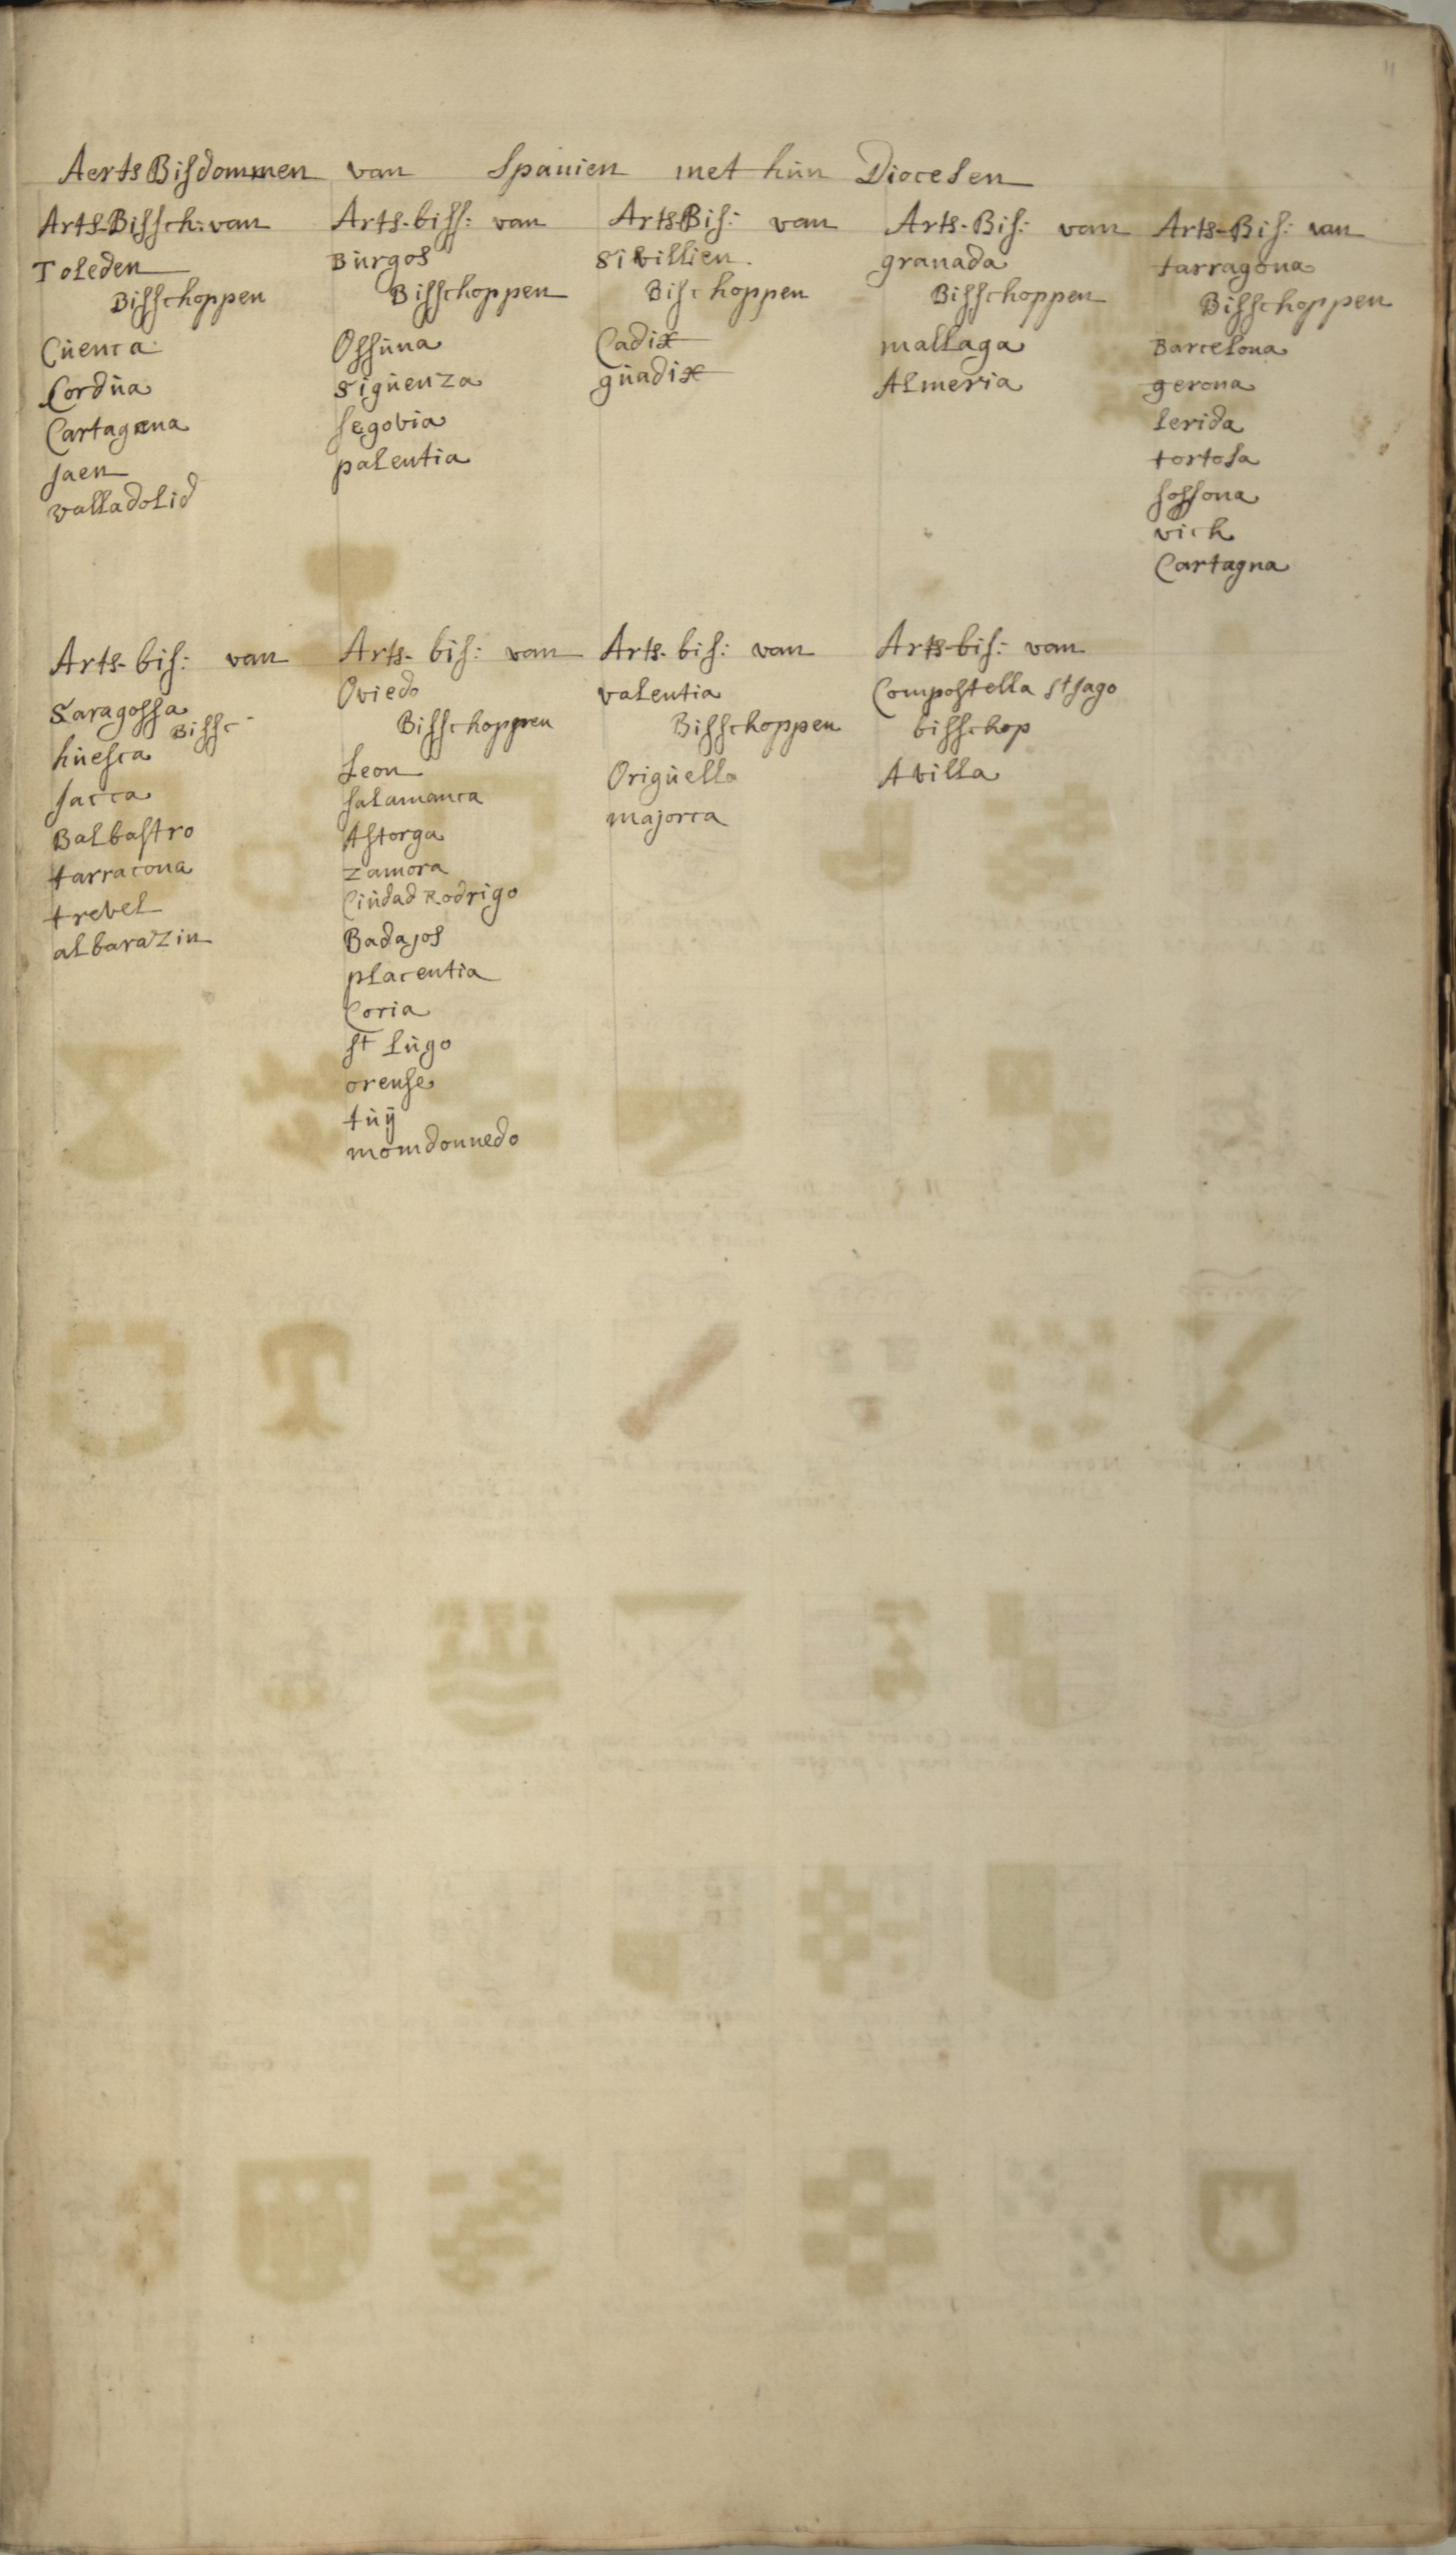 11
Aerts Bisdommen van Spanien met hun Diocesen
Arts-Bissch: van
Toleden
Bisschoppen
Cuenca
Cordua
Cartagena
Jaen
valladolid
Arts-biss: van
Burgos
Bisschoppen
Ossuna
Siguenza
Segovia
palentia
Arts-Bis: van
Sivillien.
Bischoppen
Cadix
guadix
Arts-Bis: van
granada
Bisschoppen
mallaga
Almeria
Arts-Bis: van
tarragona
Bisschoppen
Barcelona
gerona
lerida
tortosa
sossona
vich
Cartagna
Arts-bis: van
Saragossa
Bissc
huesca
Jacca
Balbastro
tarracona
trevel
albarazin
Arts-bis: van
Oviedo
Bisschoppen
Leon
salamanca
Astorga
zamora
Ciudad Rodrigo
Badajos
placentia
Coria
st Lugo
orense
tuÿ
momdonnedo
Arts-bis: van
valentia
Bisschoppen
Origuella
majorca
Arts-bis: van
Compostella st Jago
bisschop
Avilla